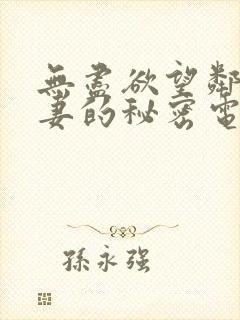 無盡欲望鄰
妻的秘密電
孫永強